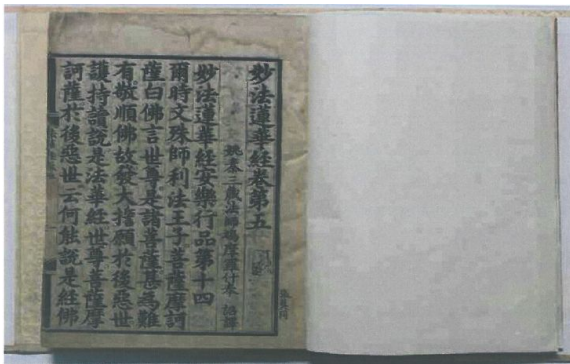 妙法蓮華經卷第五
姚秦三藏法師鳩摩羅什奉 詔譯
妙法蓮華經安樂行品第十四
爾時文殊師利法王子菩薩摩訶
薩白佛言世尊是諸菩薩甚爲難
有敬順佛故發大誓願於後惡世
護持讀說是法華經世尊菩薩摩
訶薩於後惡世云何能說是經佛